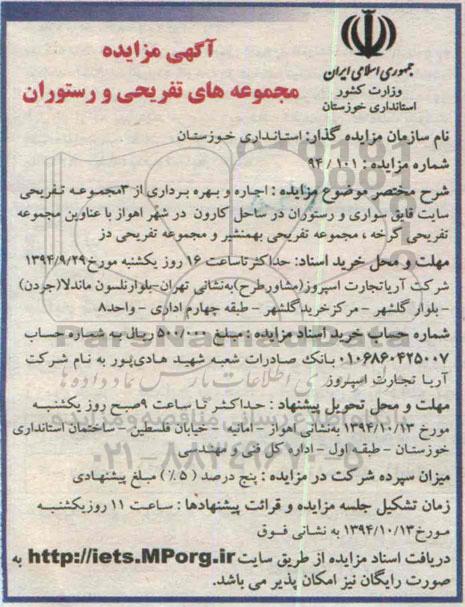 جمهوری اسلامی ایران
وزارت کشور
استانداری خوزستان
آگهی مزایده
مجموعه های تفریحی و رستوران
نام سازمان مزایده گذار: استانداری خوزستان
شماره مزایده : ۱۰۱ / ۹۴
شرح مختصر موضوع مزایده : اجاره و بهره برداری از ۳مجموعه تفریحی
سایت قایق سواری و رستوران در ساحل کارون در شهر اهواز با عناوین مجموعه
تفریحی کرخه ، مجموعه تفریحی بهمنشیر و مجموعه تفریحی دز
مهلت و محل خرید اسناد: حداکثر تاساعت ۱۶ روز یکشنبه مورخ ۱۳۹۴/۹/۲۹
شرکت آریاتجارت اسپروز(مشاورطرح)به‌نشانی تهران-بلوارنلسون ماندلا(جردن)
- بلوار گلشهر - مرکزخریدگلشهر - طبقه چهارم اداری - واحد۸
شماره حساب خرید اسناد مزایده : مبلغ ۵۰۰/۰۰۰ ریال به شماره حساب
۰۱۰۶۸۶۰۴۲۵۰۰۷ بانک صادرات شعبه شهید هادی‌پور به نام شرکت
آریا تجارت اسپروز
مهلت و محل تحویل پیشنهاد : حداکثر تا ساعت ۹صبح روز یکشنبه
مورخ ۱۳۹۴/۱۰/۱۳ به‌نشانی اهواز - امانیه - خیابان فلسطین- ساختمان استانداری
خوزستان - طبقه اول - اداره کل فنی و مهندسی
میزان سپرده شرکت در مزایده : پنج درصد ( ۵٪ ) مبلغ پیشنهادی
زمان تشکیل جلسه مزایده و قرائت پیشنهادها : ساعت ۱۱ روزیکشنبه
مورخ ۱۳۹۴/۱۰/۱۳ به نشانی فوق
دریافت اسناد مزایده از طریق سایت http://iets.MPorg.ir به
صورت رایگان نیز امکان پذیر می باشد.
ParsNamadData
۰۲۱-۸۸۳۴۹۶۷۰-۵